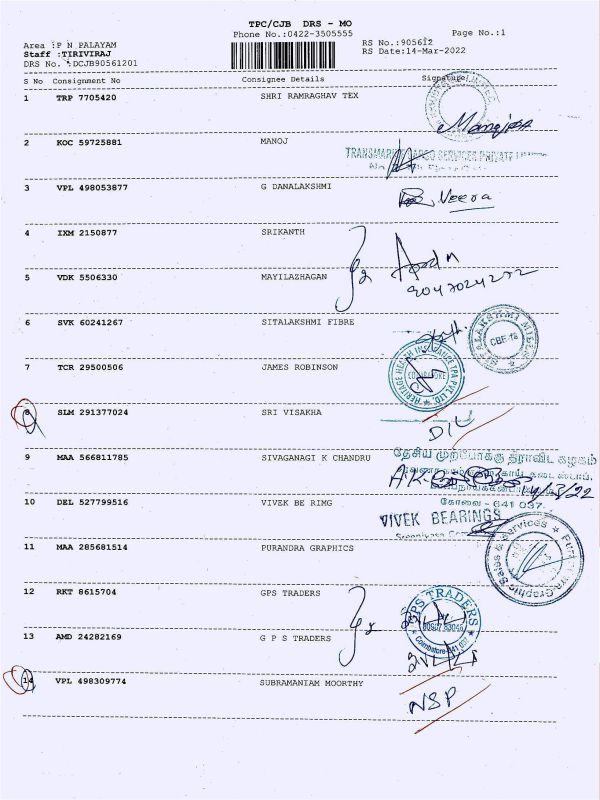 TPC/CJB DRS - MO
Phone No.:0422-3505555
Page No.:1
Area :P N PALAYAM
RS No.:905612
Staff :TIRIVIRAJ
RS Date:14-Mar-2022
DRS No. :DCJB90561201
S No Consignment No Consignee Details Signature
1 TRP 7705420 SHRI RAMRAGHAV TEX
2 KOC 59725881 MANOJ
3 VPL 498053877 G DANALAKSHMI
Veera
4 IXM 2150877 SRIKANTH
5 VDK 5506330 MAYILAZHAGAN
6 SVK 60241267 SITALAKSHMI FIBRE
CBE-18
7 TCR 29500506 JAMES ROBINSON
HERITAGE HEALTH INSURANCE TPA PVT LTD
8 SLM 291377024 SRI VISAKHA
D/L
9 MAA 566811785 SIVAGANAGI K CHANDRU
தேசிய முற்போக்கு திராவிட கழகம்
கோவை - 641 037.
10 DEL 527799516 VIVEK BE RIMG
VIVEK BEARINGS
11 MAA 285681514 PURANDRA GRAPHICS
12 RKT 8615704 GPS TRADERS
GPS TRADERS
13 AMD 24282169 G P S TRADERS
14 VPL 498309774 SUBRAMANIAM MOORTHY
NSP